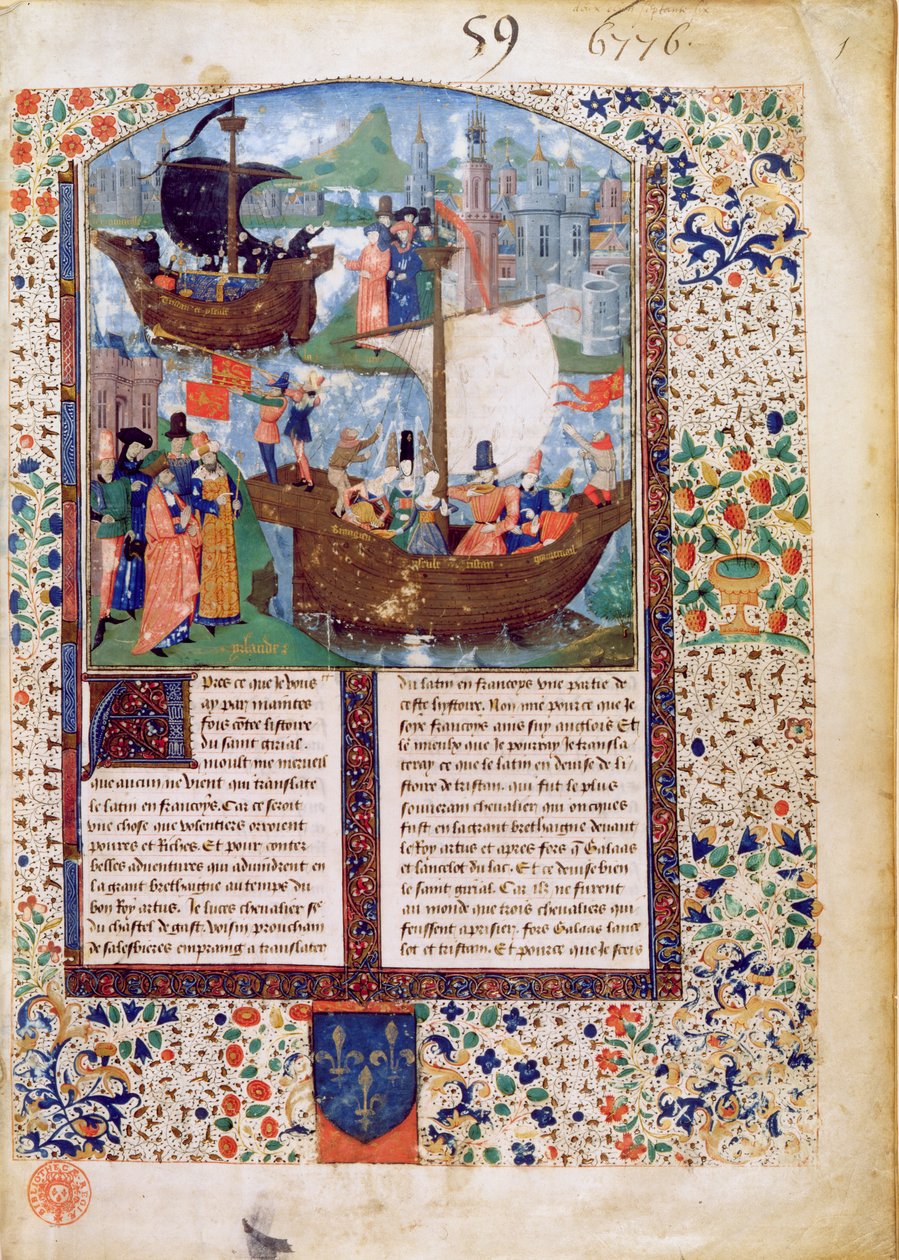 59
6776.
1
Tristan et yseult
Brangien
yseult
tristan
gouvernail
yrlande
Apres ce que Je vous
ay par maintes
fois contre listoire
du saint graal.
moult me merueil
que aucun ne vient qui translate
le latin en francoys. Car ce seroit
vne chose que volentiers orroient
poures et Riches. Et pour conter
belles aduentures qui aduindrent en
la grant brethaigne au temps du
bon Roy artus. Je luces chevalier sr
du chastel de gast. voisin prouchain
de salesbieres emprains a translater
du latin en francoys vne partie de
ceste hystoire. Non mie pource que Je
soye francoys ains suy anglois Et
le mieulx que Je pourray Je transla
teray ce que le latin en deuise de li
stoire de tristan. qui fut le plus
souuerain chevalier qui oncques
fust en la grant brethaigne deuant
le Roy artus et apres fors q̄ Galaas
et lancelot du lac. Et ce deuise bien
le saint graal. Car ilz ne furent
au monde que trois chevaliers qui
feussent a prisier. fors Galaas lance
lot et tristan. Et pource que Je scets
BIBLIOTHECÆ REGIÆ